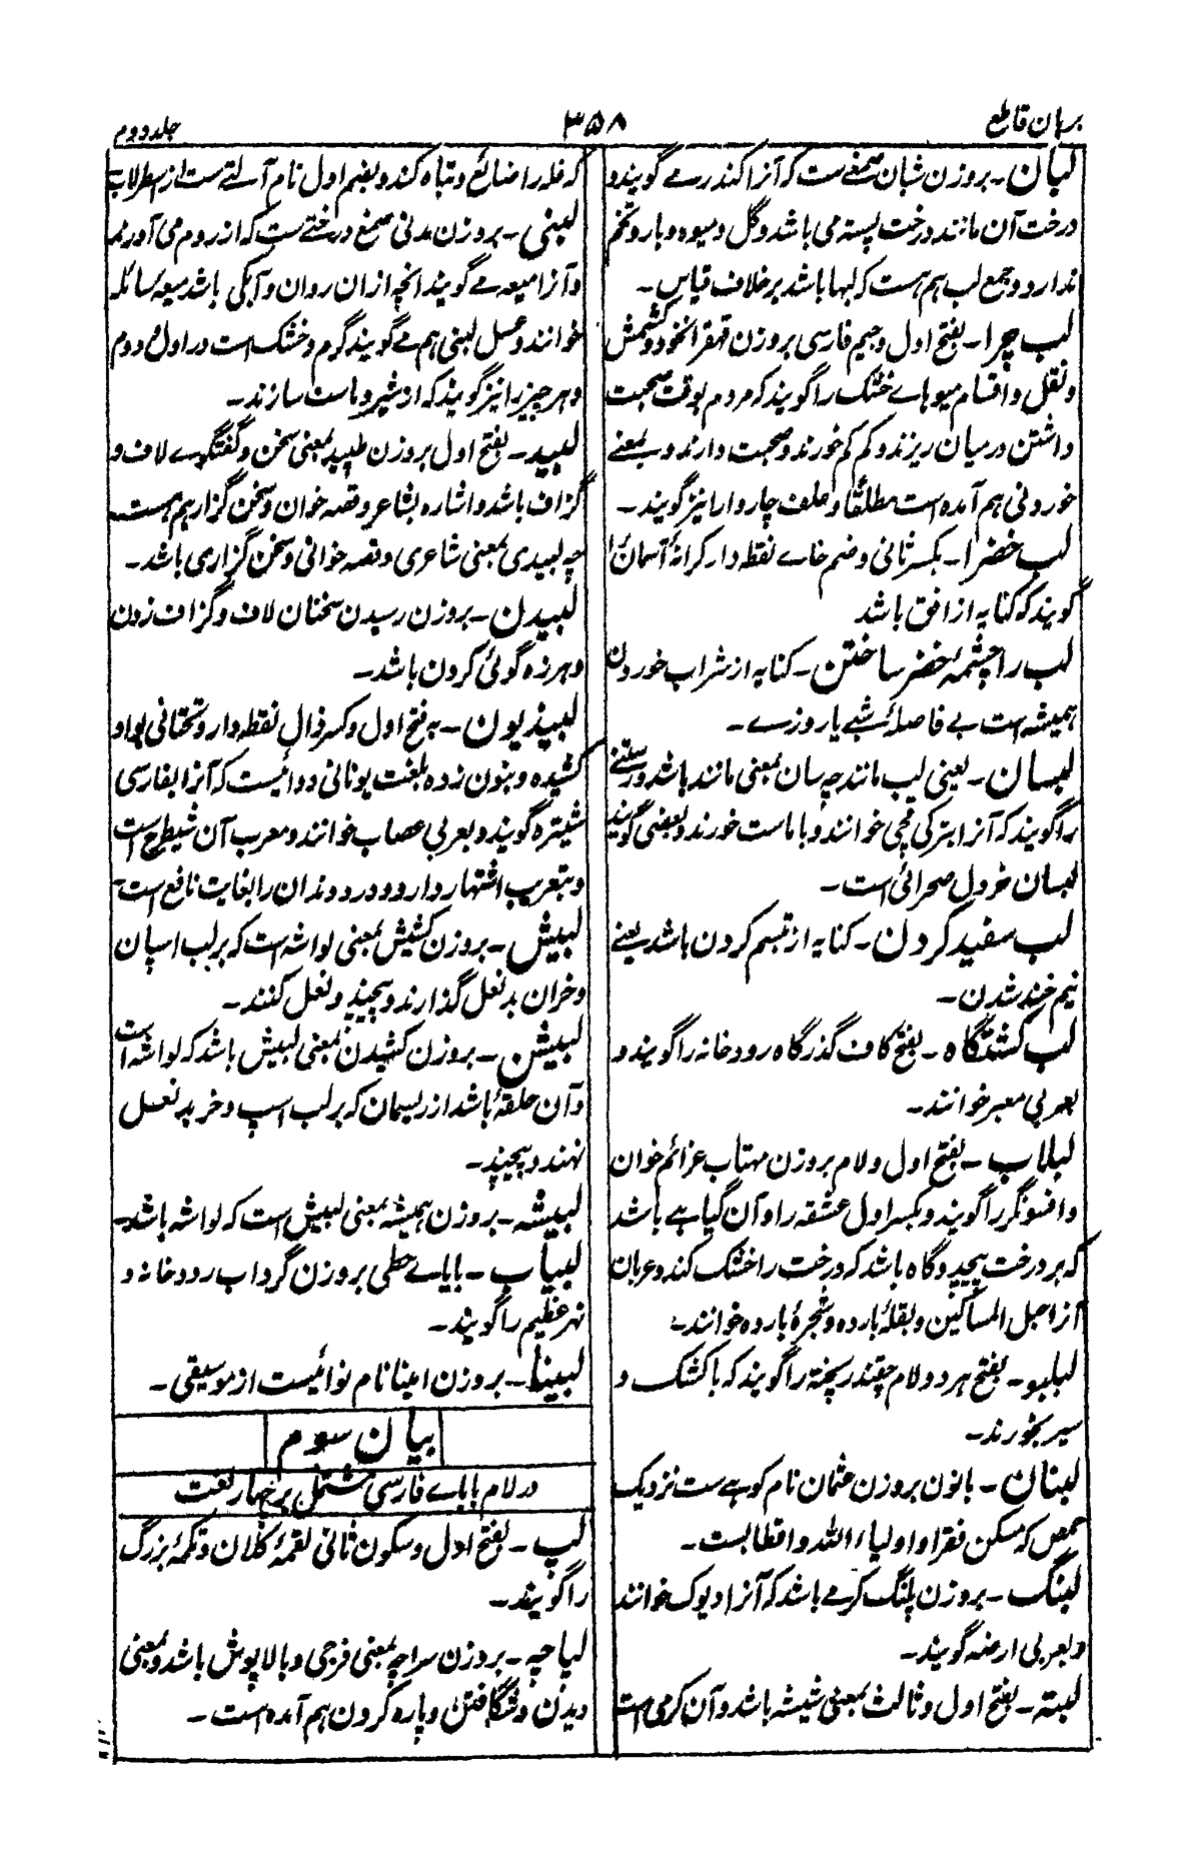 برہان قاطع
۳۵۸
جلد دوم
لبان - بروزن شبان صمغے ست کہ آنرا کندر مے گویند و
درخت آن مانند درخت پستہ می باشد و گل و میوہ و بار و تخم
ندارد و جمع لب ہم ہست کہ لبہا باشد برخلاف قیاس -
لب چرا - بفتح اول و جیم فارسی بروزن قہقرا نخود و کشمش
و نقل و اقسام میوہاے خشک را گویند کہ مردم بوقت صحبت
داشتن در میان ریزند و کم کم خورند و صحبت دارند و بمعنے
خوردنی ہم آمدہ است مطلقا و علف چاروا را نیز گویند -
لب خضرا - بکسر ثانی و ضم خاے نقطہ دار کرانۂ آسمان را
گویند کہ کنایہ از افق باشد
لب را چشمۂ خضر ساختن - کنایہ از شراب خوردن
ہمیشہ است بے فاصلۂ شبے یا روزے -
لبسان - یعنی لب مانند چہ سان بمعنی مانند باشد و رستنے
را گویند کہ آنرا بترکی قچی خوانند و با ماست خورند و بعضی گویند
لبسان خردل صحرائی است -
لب سفید کردن - کنایہ از تبسم کردن باشد یعنے
نیم خند شدن -
لب کشتگاہ - بفتح کاف گذرگاہ رودخانہ را گویند و
بعربی معبر خوانند -
لبلاب - بفتح اول و لام بروزن مہتاب عزائم خوان
و افسونگر را گویند و بکسر اول عشقہ را و آن گیاہے باشد
کہ بر درخت پیچد و گاہ باشد کہ درخت را خشک کند و عربان
آنرا حبل المساکین و بقلۂ باردہ و شجرۂ باردہ خوانند -
لبلبو - بفتح ہر دو لام چقندر پختہ را گویند کہ با کشک و
سیر بخورند -
لبنان - بانون بروزن عثمان نام کوہے ست نزدیک
حمص کہ مسکن فقرا و اولیاء اللہ و اقطابست -
لبنگ - بروزن پلنگ کرمے باشد کہ آنرا دیوک خوانند
و بعربی ارضہ گویند -
لبتہ - بفتح اول و ثالث بمعنی شیشہ باشد و آن کرمی است
کہ غلہ را ضائع و تباہ کند و بضم اول نام آلتے ست از اسطرلاب
لبنی - بروزن مدنی صمغ درختے ست کہ از روم می آورند
و آنرا میعہ مے گویند انچہ ازان روان و آبکی باشد میعہ سائلہ
خوانند و عسل لبنی ہم مے گویند گرم و خشک است در اول و دوم
و ہر چیز را نیز گویند کہ از شیر و ماست سازند -
لبید - بفتح اول بروزن طپید بمعنی سخن و گفتگوے لاف و
گزاف باشد و اشارہ بشاعر و قصہ خوان و سخن گزار ہم ہست
چہ لبیدی بمعنی شاعری و قصہ خوانی و سخن گزاری باشد -
لبیدن - بروزن رسیدن سخنان لاف و گزاف زدن
و ہرزہ گوئی کردن باشد -
لبیذیون - بہ فتح اول و کسر ذال نقطہ دار و تحتانی بواو
کشیدہ و بنون زدہ بلغت یونانی دوائیست کہ آنرا بفارسی
شیترہ گویند و بعربی عصاب خوانند و معرب آن شیطرج است
و بتعریب اشتہار دارد و درد دندان را بغایت نافع است
لبیش - بروزن کشیش بمعنی لواشہ است کہ بر لب اسپان
و خران بدنعل گذارند و پیچند و نعل کنند -
لبیشن - بروزن کشیدن بمعنی لبیش باشد کہ لواشہ است
و آن حلقۂ باشد از ریسمان کہ بر لب اسپ و خر بد نعل
نہند و پیچند -
لبیشہ - بروزن ہمیشہ بمعنی لبیش است کہ لواشہ باشد -
لبیاب - بایاے حطی بروزن گرداب رودخانہ و
نہر عظیم را گویند -
لبینا - بروزن امینا نام نوائیست از موسیقی -
بیان سوم
در لام بابای فارسی مشتمل بر چہار لغت
لپ - بفتح اول و سکون ثانی لقمۂ کلان و تکمۂ بزرگ
را گویند -
لپاچہ - بروزن سراچہ بمعنی فرجی و بالاپوش باشد و بمعنی
دیدن و شگافتن و پارہ کردن ہم آمدہ است -